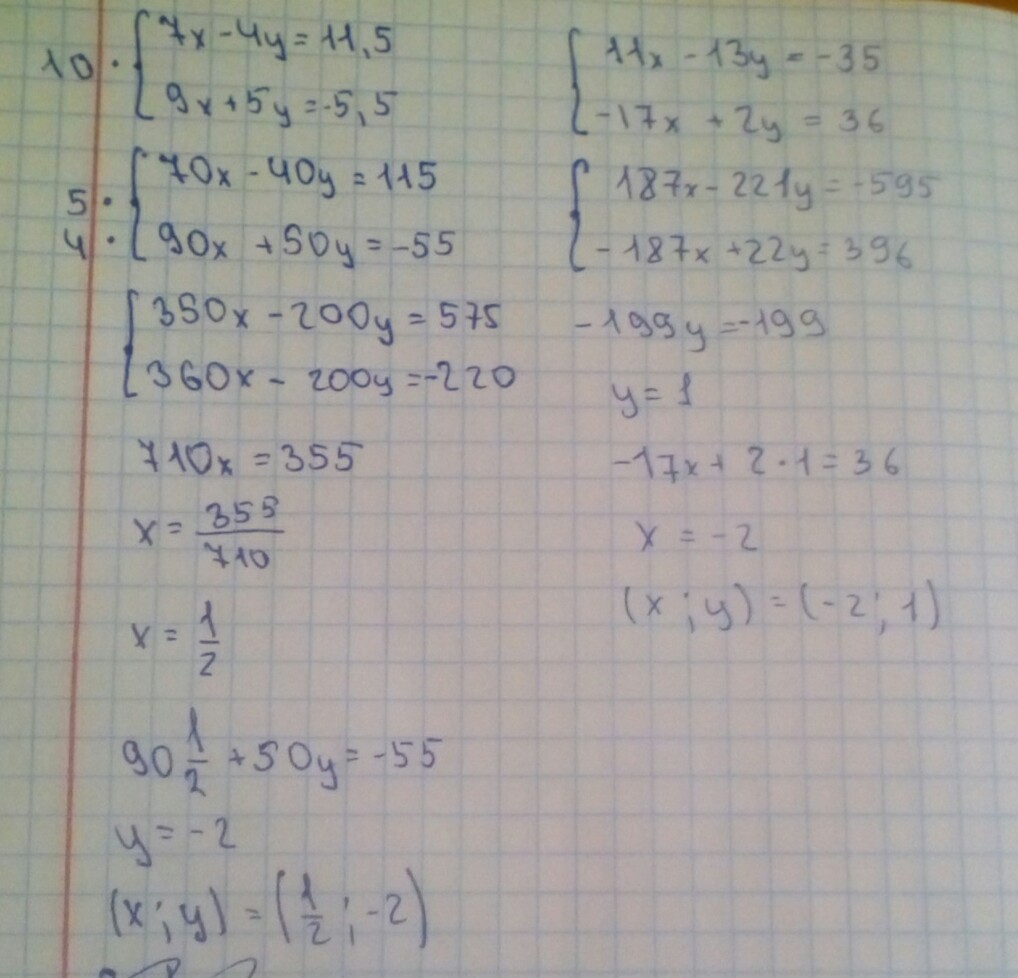 10 · { 7x - 4y = 11,5
9x + 5y = -5,5
5 · { 70x - 40y = 115
4 · 90x + 50y = -55
{ 350x - 200y = 575
360x - 200y = -220
710x = 355
x = 355/710
x = 1/2
90 1/2 + 50y = -55
y = -2
(x ; y) = (1/2 ; -2)
{ 11x - 13y = -35
-17x + 2y = 36
{ 187x - 221y = -595
-187x + 22y = 396
-199y = -199
y = 1
-17x + 2 · 1 = 36
x = -2
(x ; y) = (-2 ; 1)